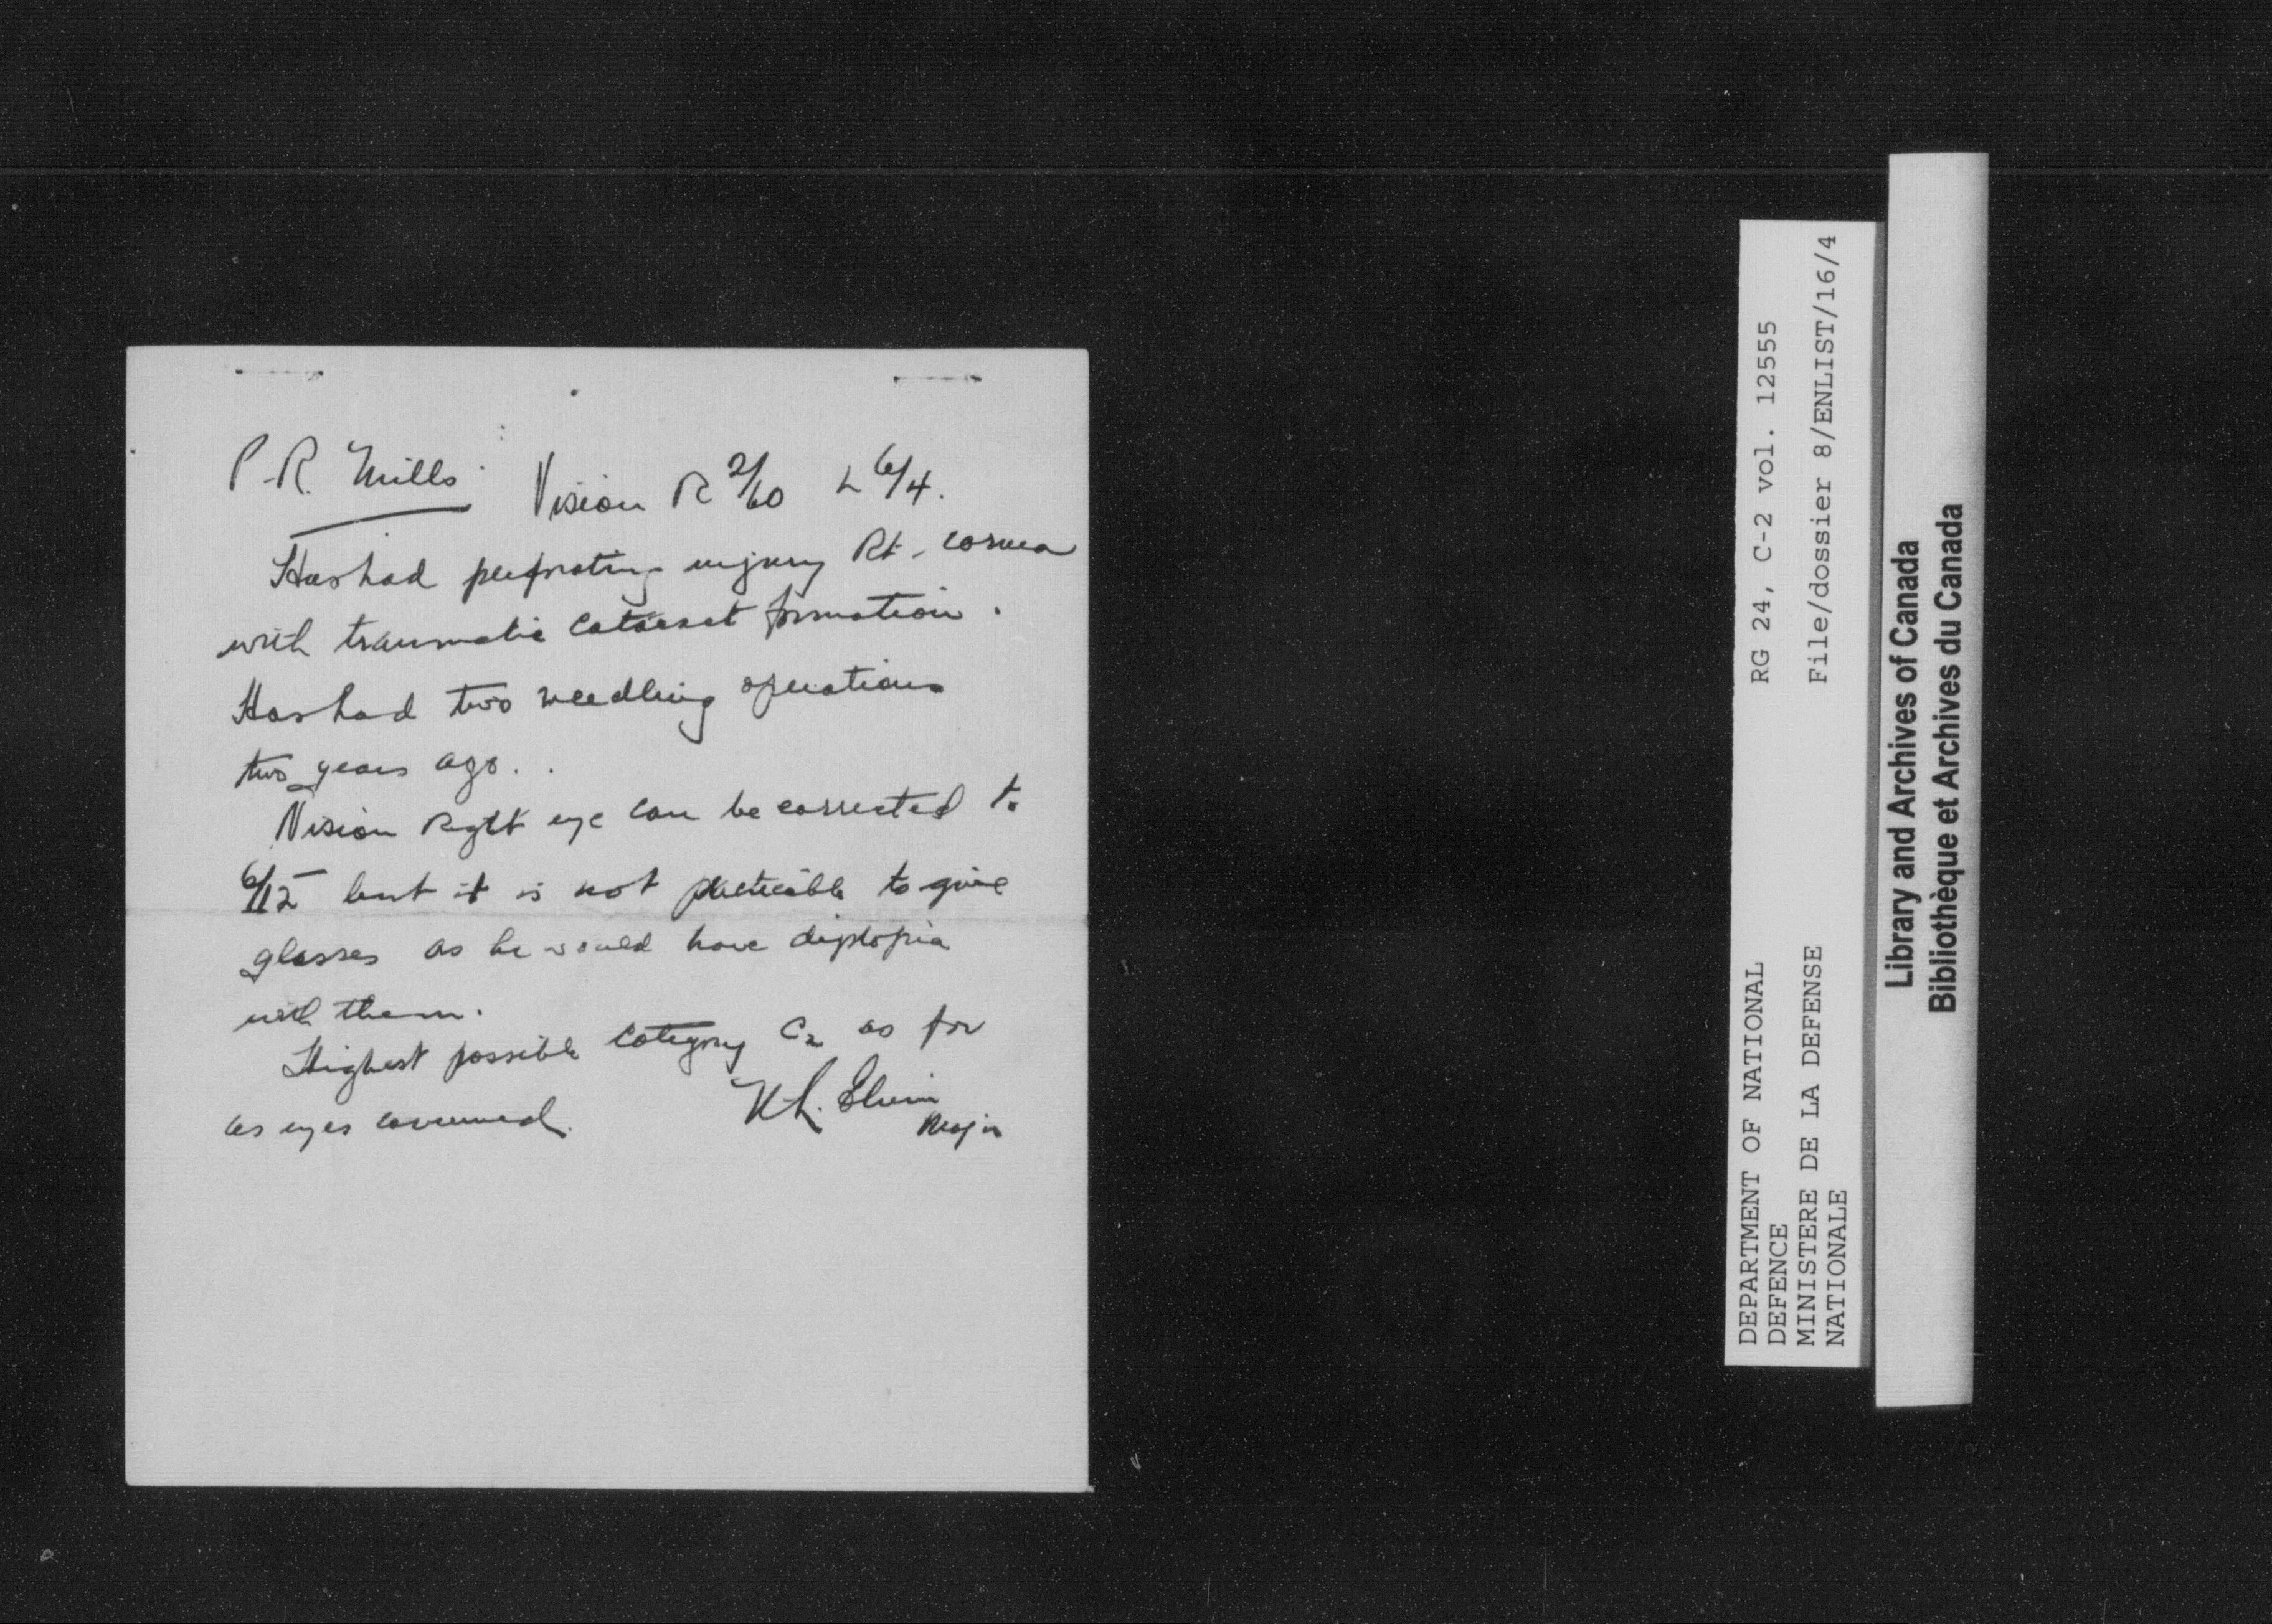 P.R. Mills Vision R 2/60 L 6/4.
Has had perforating injury Rt. cornea
with traumatic cataract formation.
Has had two needling operations
two years ago..
Vision Right eye can be corrected to
6/12 but it is not practicable to give
glasses as he would have diplopia
with them.
Highest possible category C2 as far
as eyes concerned.
Major
DEPARTMENT OF NATIONAL
DEFENCE
MINISTERE DE LA DEFENSE
NATIONALE
RG 24, C-2 vol. 12555
File/dossier 8/ENLIST/16/4
Library and Archives of Canada
Bibliothèque et Archives du Canada